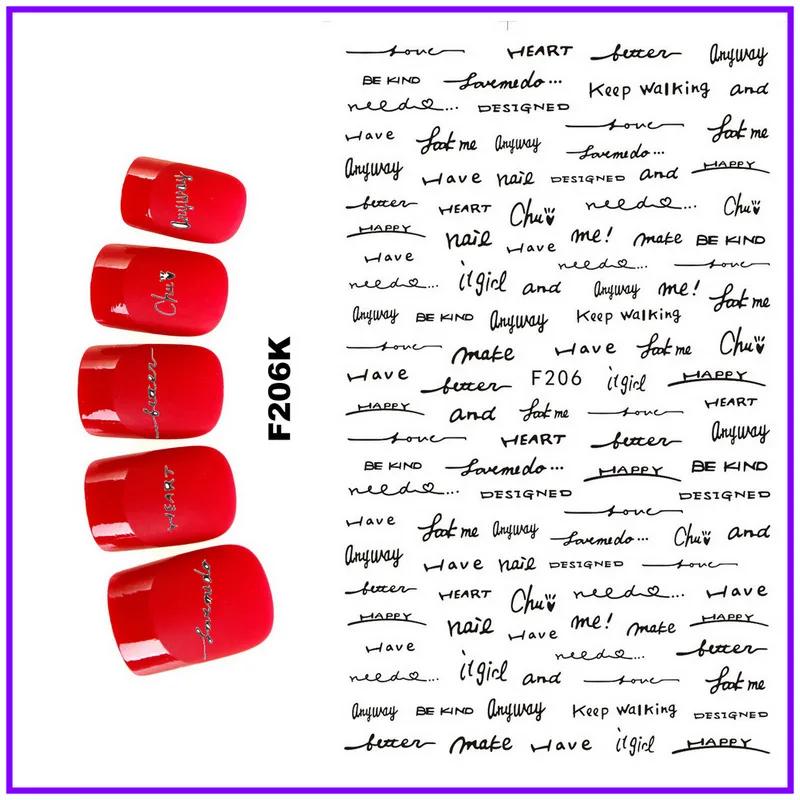 Anyway
Chu
better
HEART
Lovemedo
F206K
love HEART better Anyway
BE KIND Lovemedo... Keep walking and
need... DESIGNED
love
Have look me Anyway look me
Lovemedo...
Anyway Have nail DESIGNED and HAPPY
better HEART Chu need... Chu
HAPPY nail Have me! make BE KIND
Have need... love
need... it girl and Anyway me! look me
Anyway BE KIND Anyway Keep walking
love make Have look me Chu
Have better F206 it girl HAPPY
HAPPY and look me love HEART
love HEART better Anyway
BE KIND Lovemedo... HAPPY BE KIND
need... DESIGNED DESIGNED
love
Have look me Anyway Lovemedo... Chu and
Anyway Have nail DESIGNED love
better HEART Chu need... Have
HAPPY nail Have me! make HAPPY
Have need... better
need... it girl and love look me
Anyway BE KIND Anyway Keep walking DESIGNED
better make Have it girl HAPPY